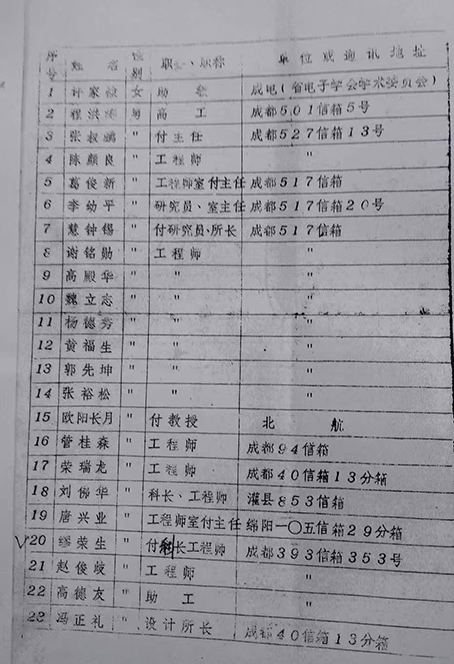 序号 姓名 性别 职务、职称 单位或通讯地址
1 许家 女 助教 成电(省电子学会学术委员会)
2 程洪 男 高工 成都501信箱5号
3 张叔 " 付主任 成都527信箱13号
4 陈显良 " 工程师 "
5 葛俊新 " 工程师室付主任 成都517信箱
6 李幼平 " 研究员、室主任 成都517信箱20号
7 钟锡 " 付研究员、所长 成都517信箱
8 谢铭勋 " 工程师 "
9 高殿华 " " "
10 魏立志 " " "
11 杨德秀 " " "
12 黄福生 " " "
13 郭先坤 " " "
14 张裕松 " " "
15 欧阳长月 " 付教授 北航
16 管桂森 " 工程师 成都94信箱
17 荣瑞龙 " 工程师 成都40信箱13分箱
18 刘华 " 科长、工程师 灌县853信箱
19 唐兴业 " 工程师室付主任 绵阳一〇五信箱29分箱
√20 缪荣生 " 付科长工程师 成都393信箱353号
21 赵俊 " 工程师 "
22 高德友 " 助工 "
23 冯正礼 " 设计所长 成都40信箱13分箱